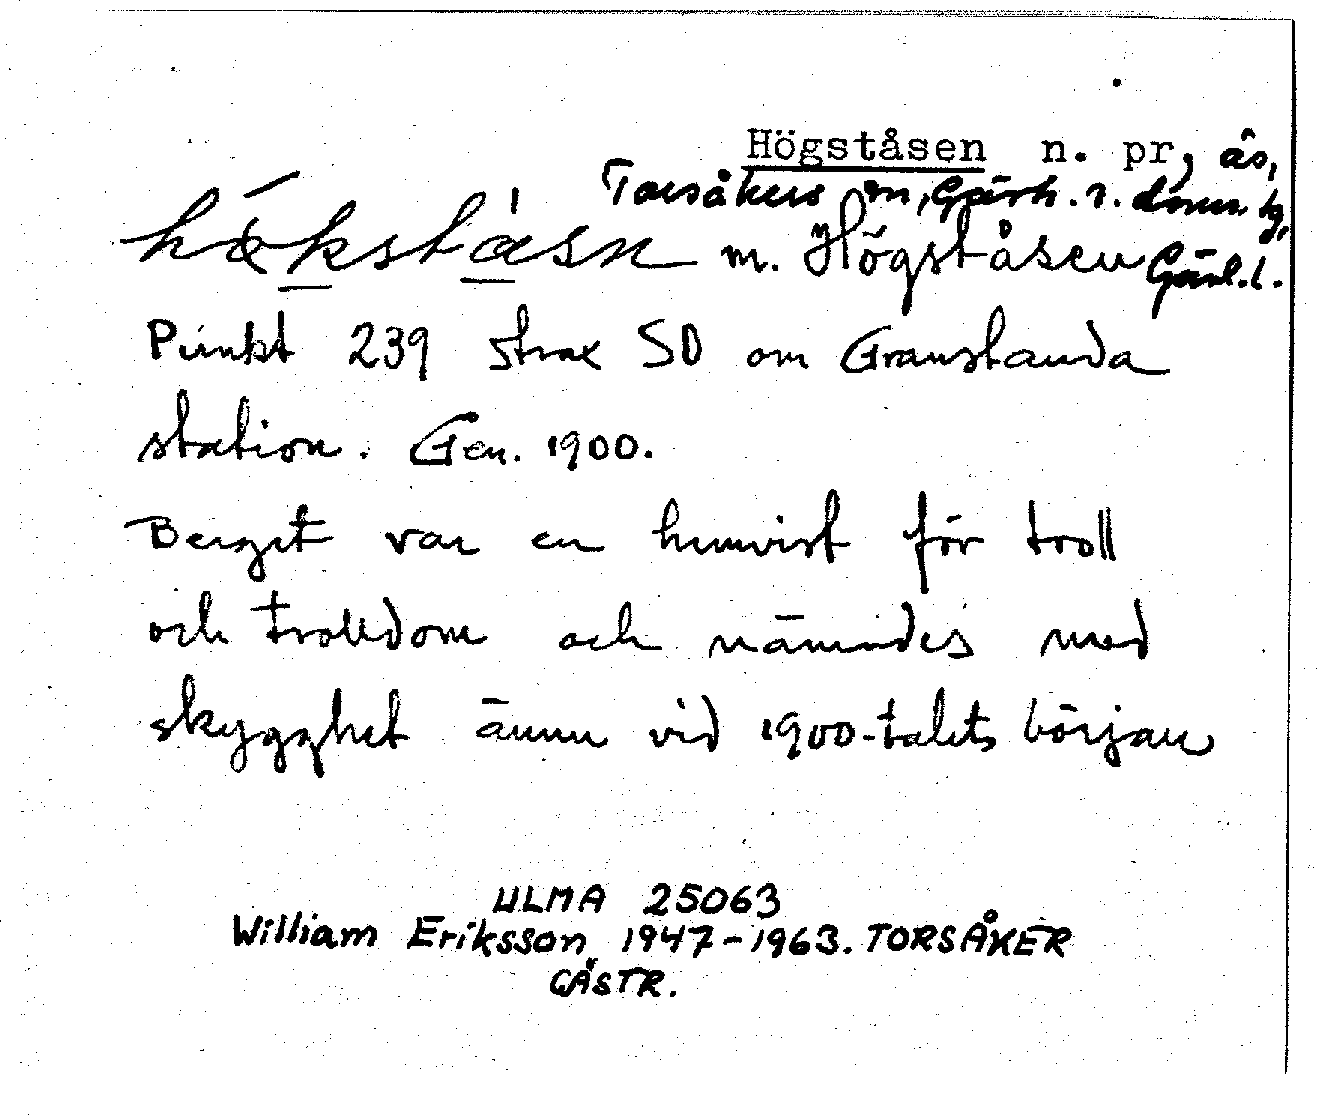 Högståsen n. pr, ås,
Torsåkers sn, Gästr. ö. doms. tg,
hökståsn m. Högståsen Gävl. l.
Punkt 239 strax SO om Granstanda
station. Gen. 1900.
Berget var en hemvist för troll
och trolldom och nämndes med
skygghet ännu vid 1900-talets början
ULMA 25063
William Eriksson 1947-1963. TORSÅKER
GÄSTR.